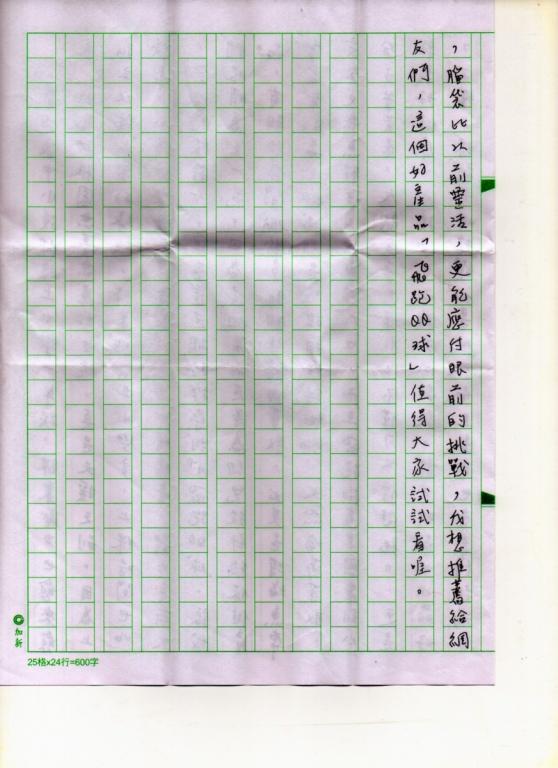 ，腦袋比以前靈活，更能應付眼前的挑戰，我想推薦給網
友們，這個好產品「飛跑QQ球」值得大家試試看喔。
加新
25格x24行=600字